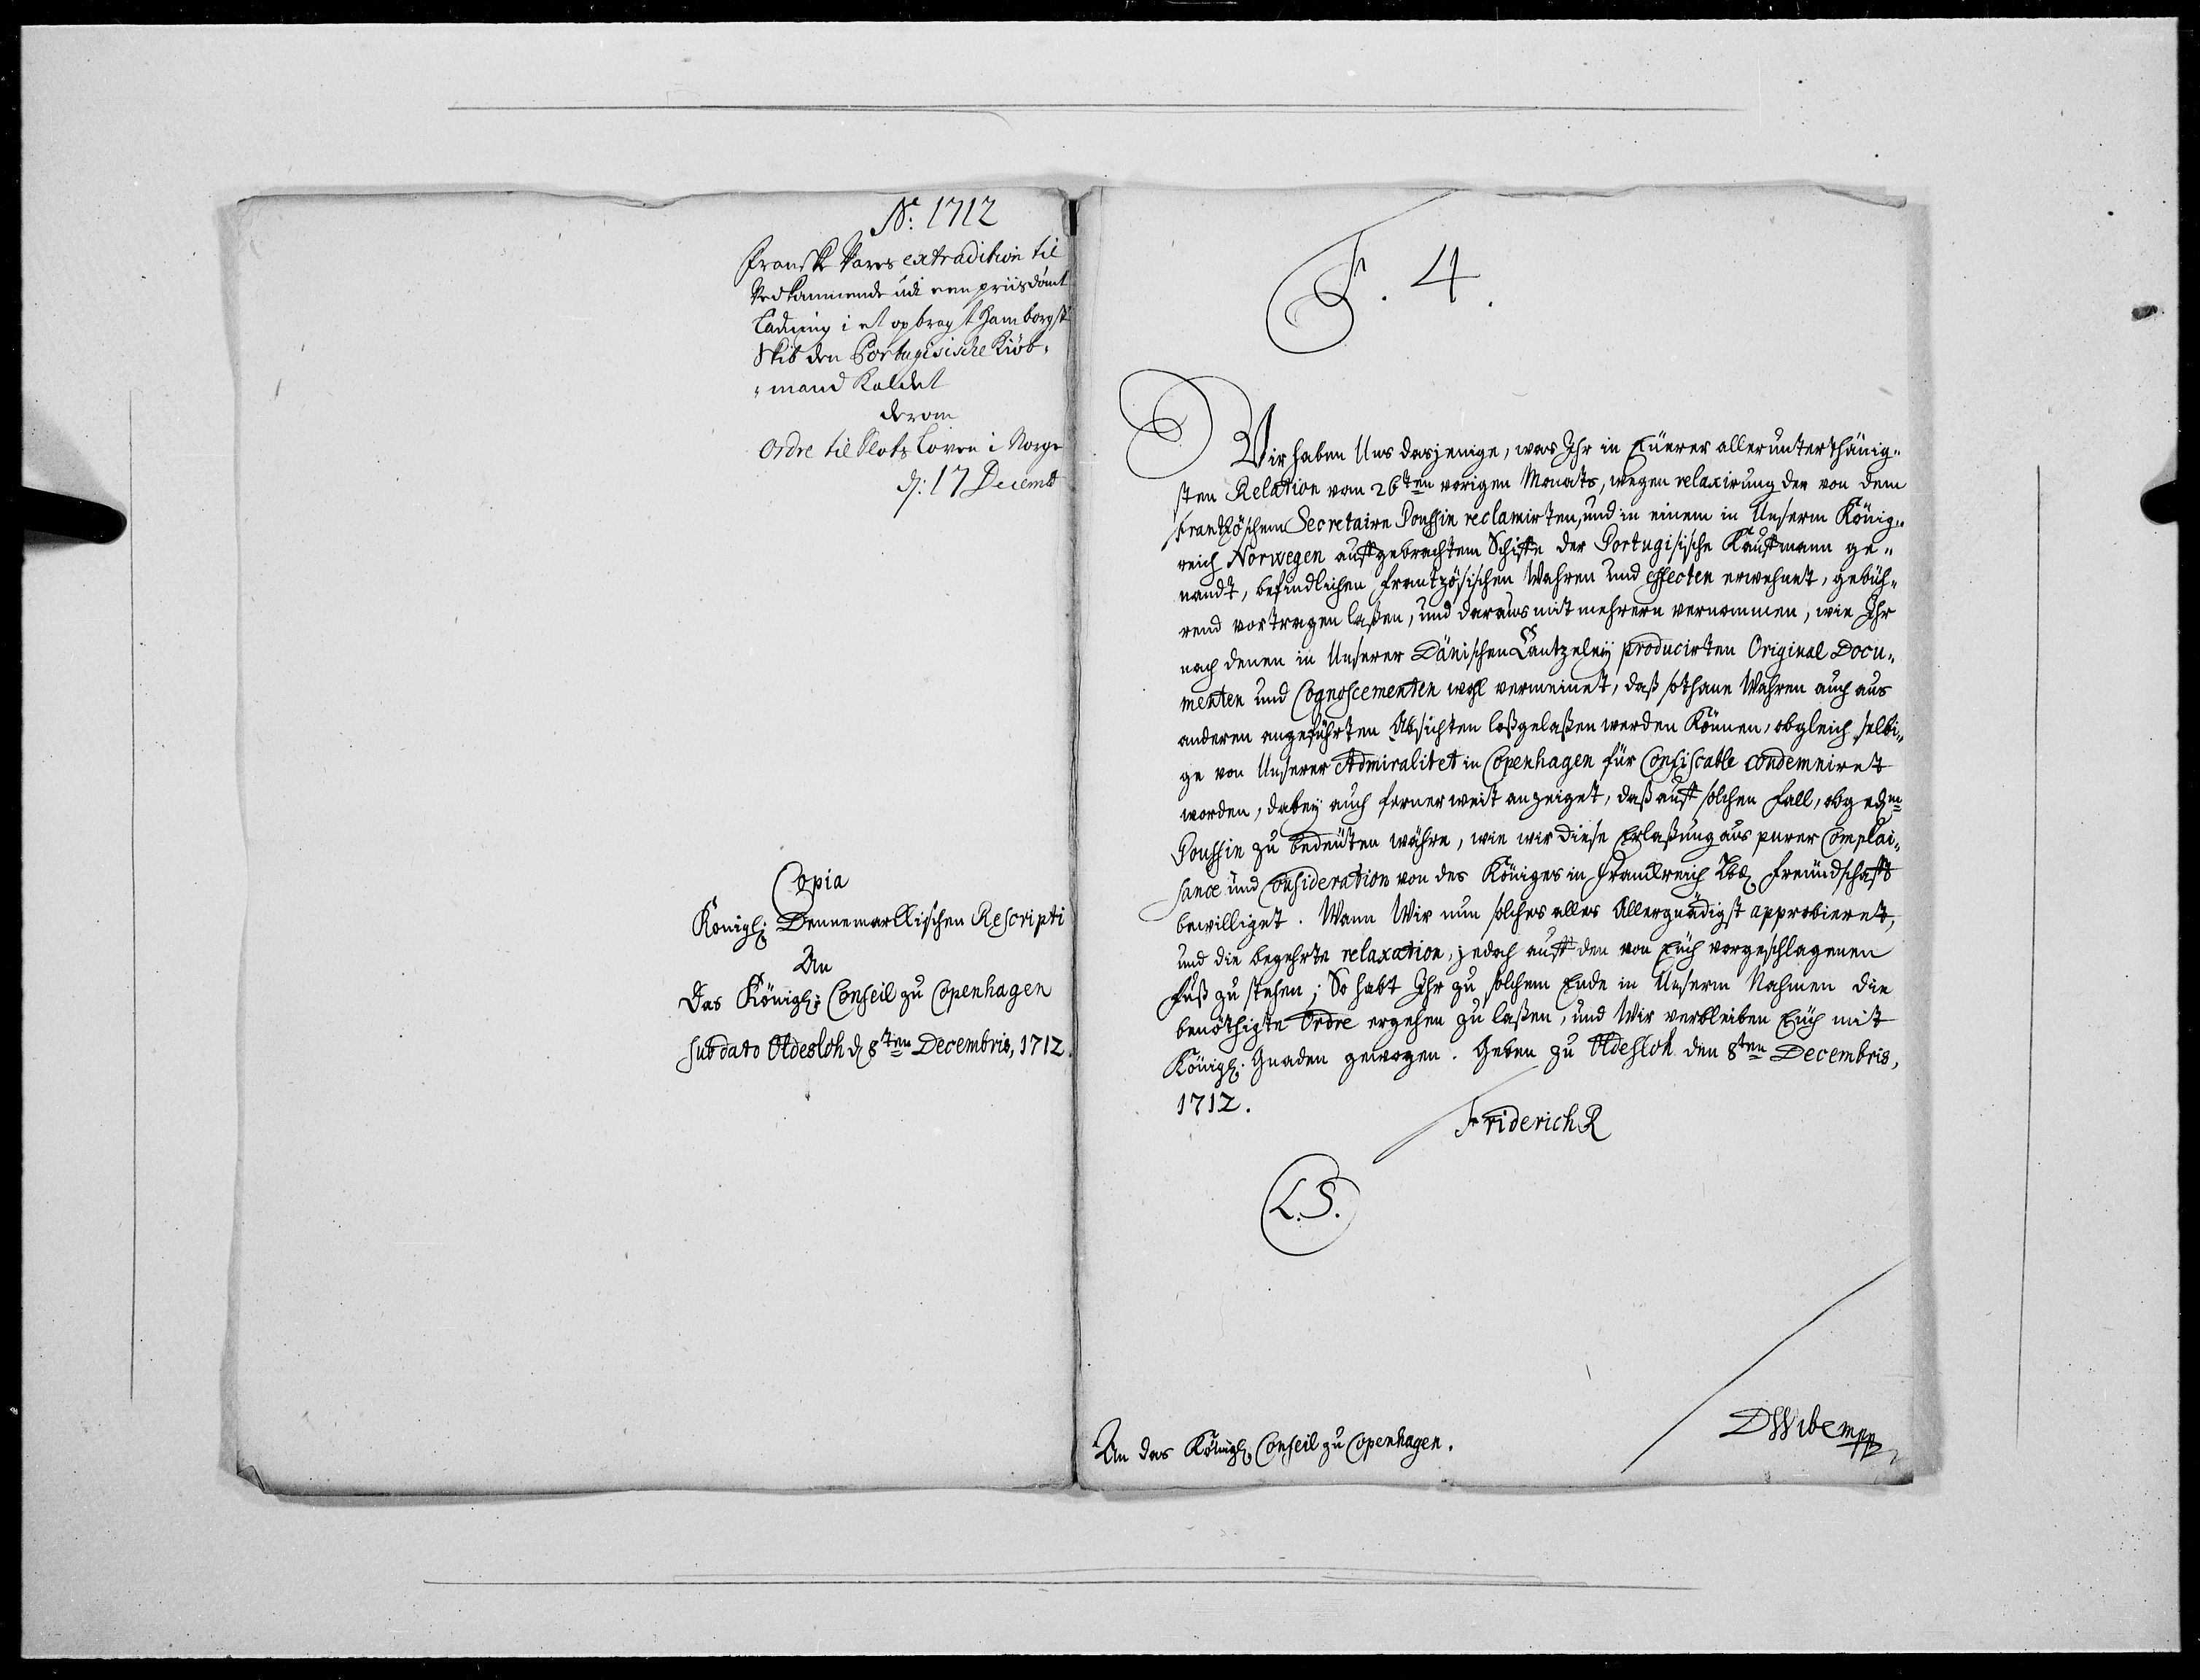 No: 1712
Franske Vares extradition til
Vedkommende udi een priisdömt
Ladning i et opbragt Hamborgsk
Skib den Portugisische Kiöb„
„mand Kaldet
derom
Ordre til Slots Loven i Norge
d: 17 Decemb
Copia
Königl: Dennemarkischen Rescripti
An
Das Königl: Conseil zu Copenhagen
sub dato Oldesloh d 8ten Decembris, 1712.
F. 4.
Wir haben Uns dasjenige, was Ihr in Eüerer allerunterthänig„
sten Relation vom 26ten vorigen Monats, wegen relaxirung der von dem
frantzöschem Secretaire Poussin reclamirten, und in einem in Unserm König„
reich Norwegen auffgebrachtem Schiffe der Portugisische Kauffmann ge„
nandt, befindlichen frantzösischen Wahren und effecten erwehnet, gebüh„
rend vortragen laßen, und daraus mit mehrern vernommen, wie Ihr
nach denen in Unserer Dänischen Cantzeleÿ producirten Original Docu„
menten und Cognoscementen wohl vermeinet, daß sothane Wahren auch aus
anderen angeführten Absichten loßgelaßen werden Können, obgleich selbi„
ge von Unserer Admiralitet in Copenhagen für Confiscable condemniret
worden, dabeÿ auch fernerweit anzeiget, daß auff solchen Fall, obgedm
Poussin zu bedeüten währe, wie wir diese Erlaßung aus purer Complai„
sance und Consideration von des Königes in Franckreich Lbd Freündschafft
bewilliget. Wann Wir nun solches alles Allergnädigst approbieret,
und die begehrte relaxation, jedoch auff den von Eüch vorgeschlagenen
Fuß zu stehen; So habt Ihr zu solchem Ende in Unserm Nahmen die
benöthigte Ordre ergehen zu laßen, und Wir verbleiben Eüch mit
Königl: Gnaden gewogen. Geben zu Oldesloh den 8ten Decembris,
1712.
Friderich R
L.S.
DWibe mpp
An das Königl: Conseil zu Copenhagen.